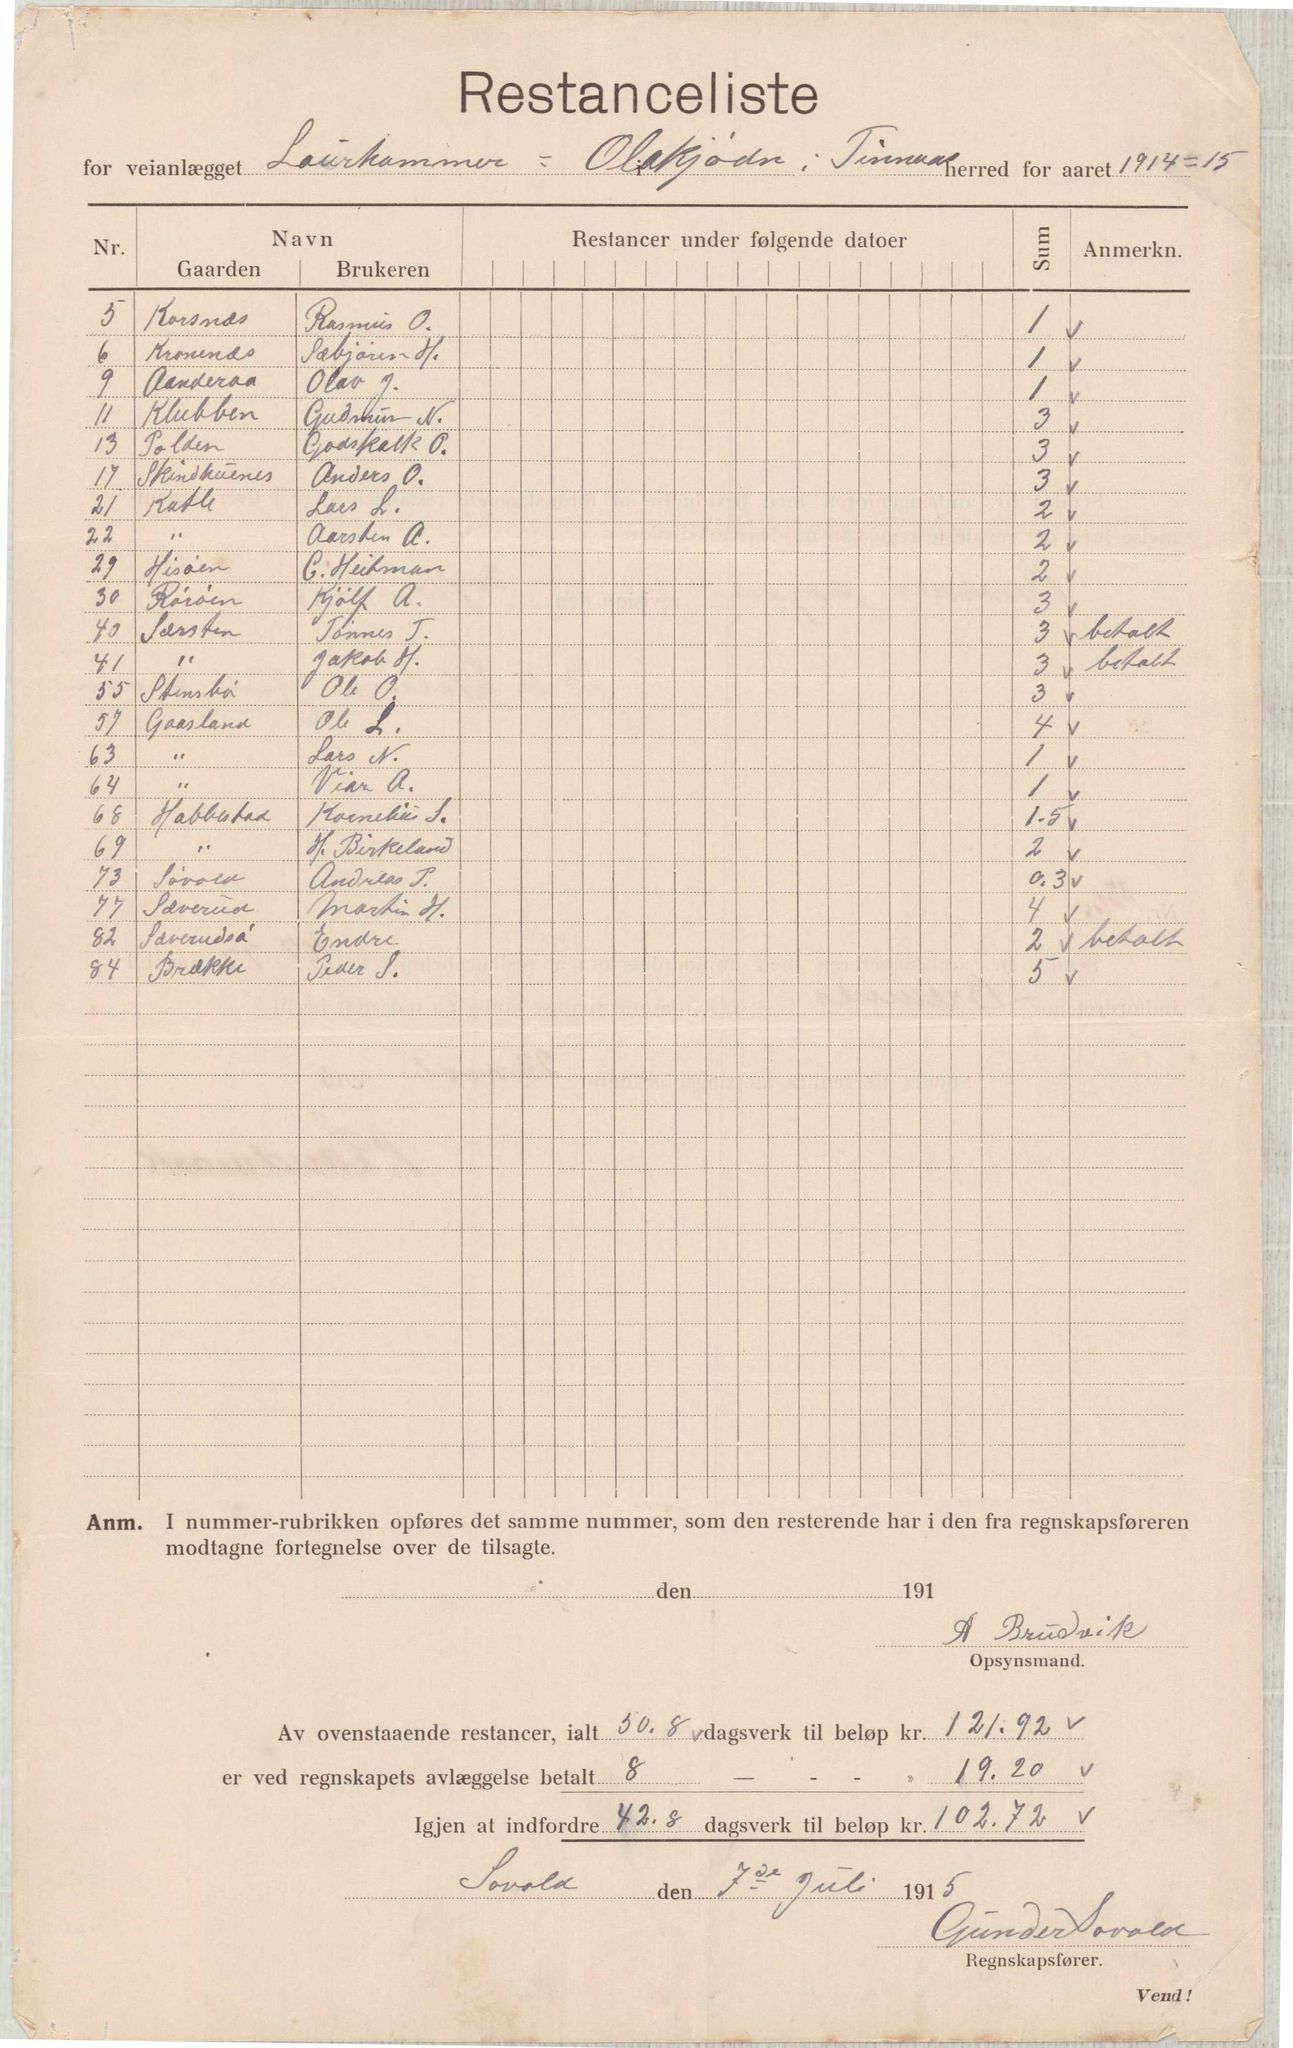 Restanceliste
for veianlægget Laurhammer = Olakjødn i Finnaas herred for aaret 1914=15
Nr. Navn Restancer under følgende datoer Sum Anmerkn.
Gaarden Brukeren
5 Korsnæs Rasmus O. 1 v
6 Kronenæs Sæbjören H. 1 v
9 Aanderaa Olav J. 1 v
11 Klubben Gudmun N. 3 v
13 Polden Godskalk P. 3 v
17 Skindhuenes Anders O. 3 v
21 Katle Lars L. 2 v
22 " Aarsten A. 2 v
29 Hisøen C. Heitman 2 v
30 Rörøen Kjölf A. 3 v
40 Særsten Tönnes T. 3 v betalt
41 " Jakob H. 3 v betalt
55 Stensbö Ole O. 3 v
57 Gaasland Ole L. 4 v
63 " Lars N. 1 v
64 " Viar A. 1 v
68 Habbestad Kornelius S. 1.5 v
69 " H. Birkeland 2 v
73 Sovold Andreas P. 0.3 v
77 Sæverud Martin H. 4 v
82 Sæverudsö Endre 2 v betalt
84 Brække Peder S. 5 v
Anm. I nummer-rubrikken opføres det samme nummer, som den resterende har i den fra regnskapsføreren
modtagne fortegnelse over de tilsagte.
den 191
A Brudvik
Opsynsmand.
Av ovenstaaende restancer, ialt 50.8 v dagsverk til beløp kr. 121.92 v
er ved regnskapets avlæggelse betalt 8 — - - „ 19.20 v
Igjen at indfordre 42.8 dagsverk til beløp kr. 102.72 v
Sovold den 7de Juli 1915
Gunder Sovold
Regnskapsfører.
Vend!